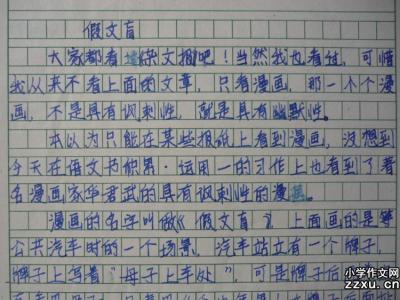 假文盲
大家都看过杂文报吧!当然我也看过,可惜
我从来不看上面的文章,只看漫画,那一个个漫
画,不是具有讽刺性,就是具有幽默性。
本以为只能在某些报纸上看到漫画,没想到
今天在语文书积累·运用一的习作上也看到了着
名漫画家华君武的具有讽刺性的漫画。
漫画的名字叫做《假文盲》,上面画的是等
公共汽车时的一个场景,汽车站立有一个牌子,
牌子上写着"母子上车处",可是牌子后
小学作文网
zzxu.cn